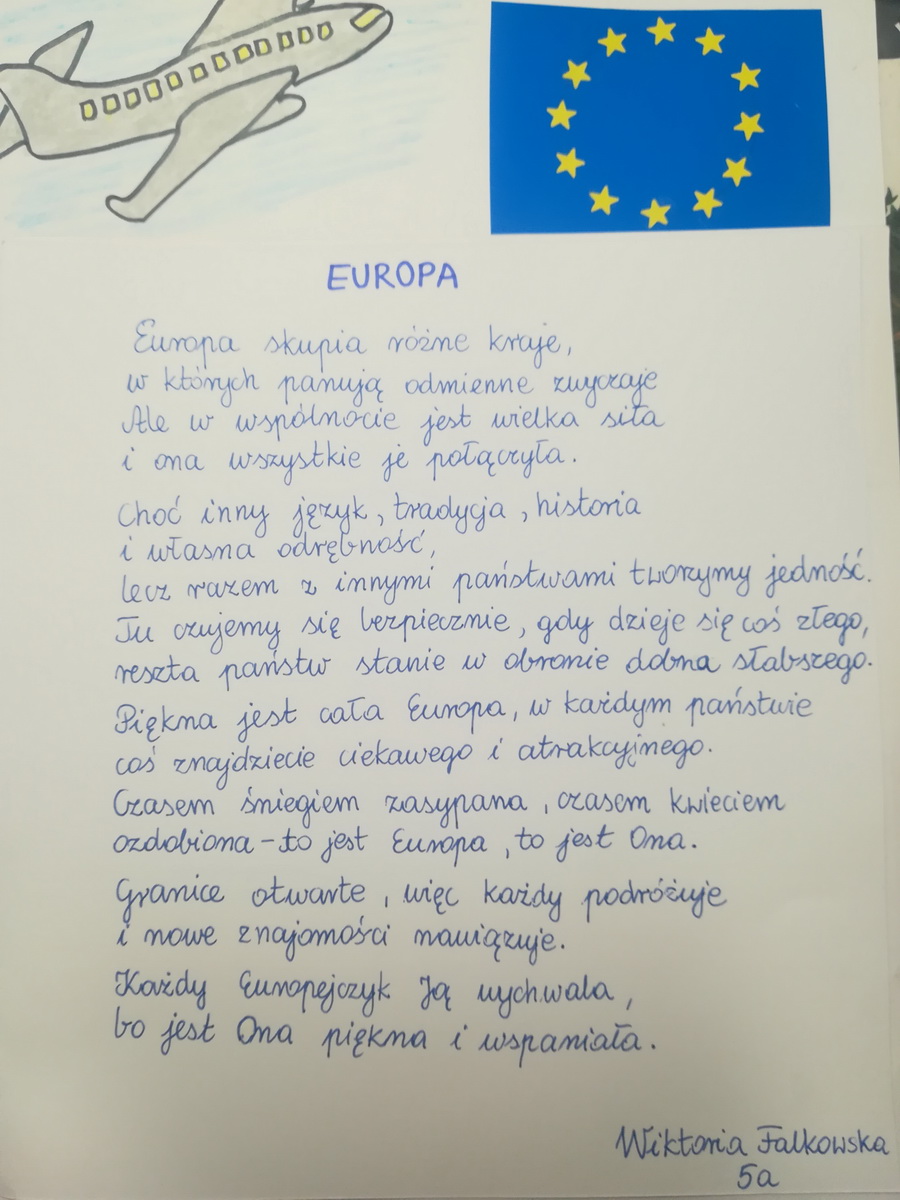 EUROPA
Europa skupia różne kraje,
w których panują odmienne zwyczaje
Ale w wspólnocie jest wielka siła
i ona wszystkie je połączyła.
Choć inny język, tradycja, historia
i własna odrębność,
lecz razem z innymi państwami tworzymy jedność.
Tu czujemy się bezpiecznie, gdy dzieje się coś złego,
reszta państw stanie w obronie dobra słabszego.
Piękna jest cała Europa, w każdym państwie
coś znajdziecie ciekawego i atrakcyjnego.
Czasem śniegiem zasypana, czasem kwieciem
ozdobiona - to jest Europa, to jest Ona.
Granice otwarte, więc każdy podróżuje
i nowe znajomości nawiązuje.
Każdy Europejczyk Ją wychwala,
bo jest Ona piękna i wspaniała.
Wiktoria Falkowska
5a